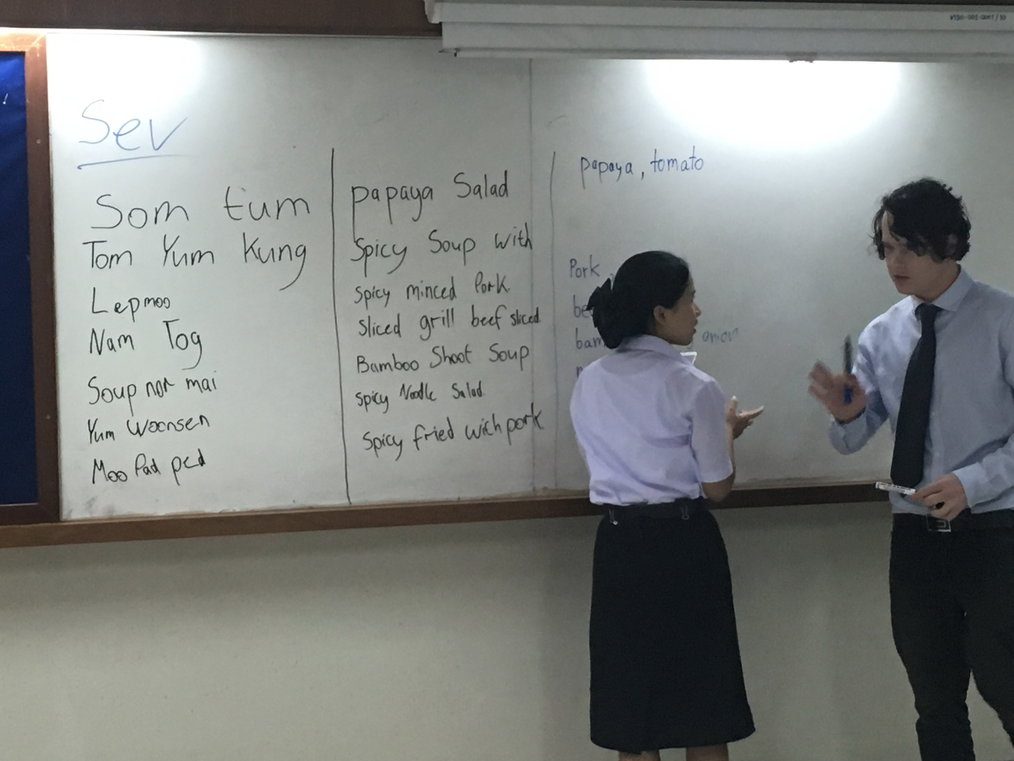 Sev
Som tum
Tom Yum Kung
Lepmoo
Nam Tog
Soup nor mai
Yum woonsen
Moo Pad ped
papaya Salad
Spicy Soup with
Spicy minced Pork
Sliced grill beef sliced
Bamboo Shoot Soup
Spicy Noodle Salad
Spicy fried with pork
papaya, tomato
Pork
onion